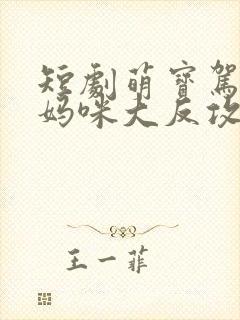 短劇萌寶駕
媽咪大反攻
王一菲